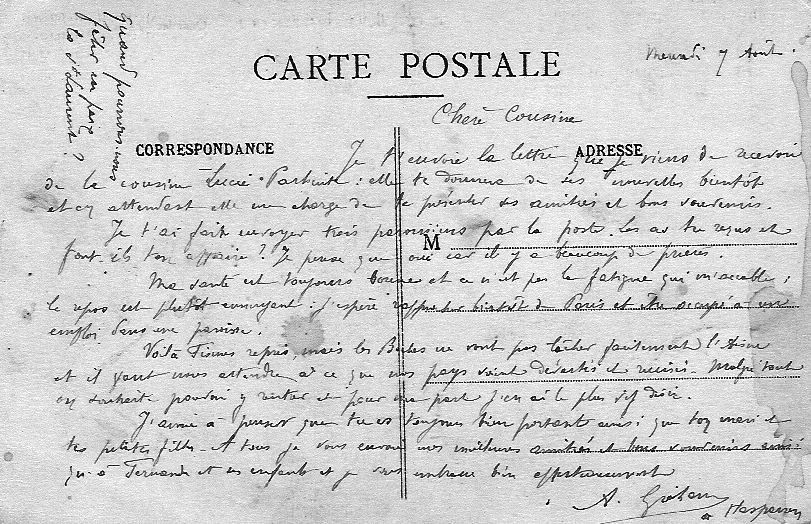 Quand pourrons-nous
fêter en paix
la St Laurent ?
Mercredi 7 Août.
CARTE POSTALE
Chère Cousine
CORRESPONDANCE
ADRESSE
Je t'envoie la lettre que je viens de recevoir
de la cousine Lucie : elle te donnera de ses nouvelles bientôt
et en attendant elle me charge de te présenter ses amitiés et bons souvenirs.
Je t'ai fait envoyer trois paroissiens par la poste. Les as tu reçus et
M
font-ils ton affaire ? Je pense que oui car il y a beaucoup de prières.
Ma santé est toujours bonne et ce n'est pas la fatigue qui m'accable ;
le repos est plutôt ennuyant : j'espère rapprocher bientôt de Paris et être occupé à un
emploi dans une paroisse.
Voilà Fismes repris, mais les Boches ne vont pas lâcher facilement l'Aisne
et il faut nous attendre à ce que nos pays soient dévastés et ruinés. Malgré tout
on souhaite pouvoir y rentrer et pour ma part j'en ai le plus vif désir.
J'aime à penser que tu es toujours bien portante ainsi que ton mari et
tes petites filles. A tous je vous envoie mes meilleures amitiés et bons souvenirs ainsi
qu'à Fernande et ses enfants et je vous embrasse bien affectueusement
A.